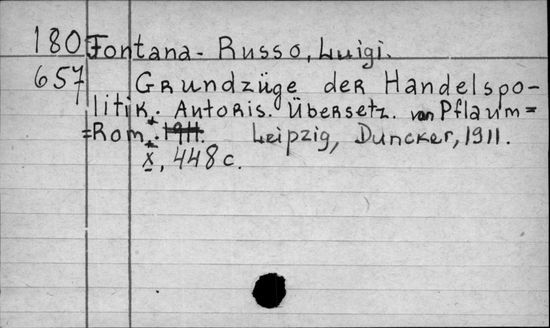 180 Fontana-Russo, Luigi.
657 Grundzüge der Handelspo-
litik. Autoris. Übersetz. von Pflaum=
=Rom. 1911. Leipzig, Duncker, 1911.
X, 448 c.